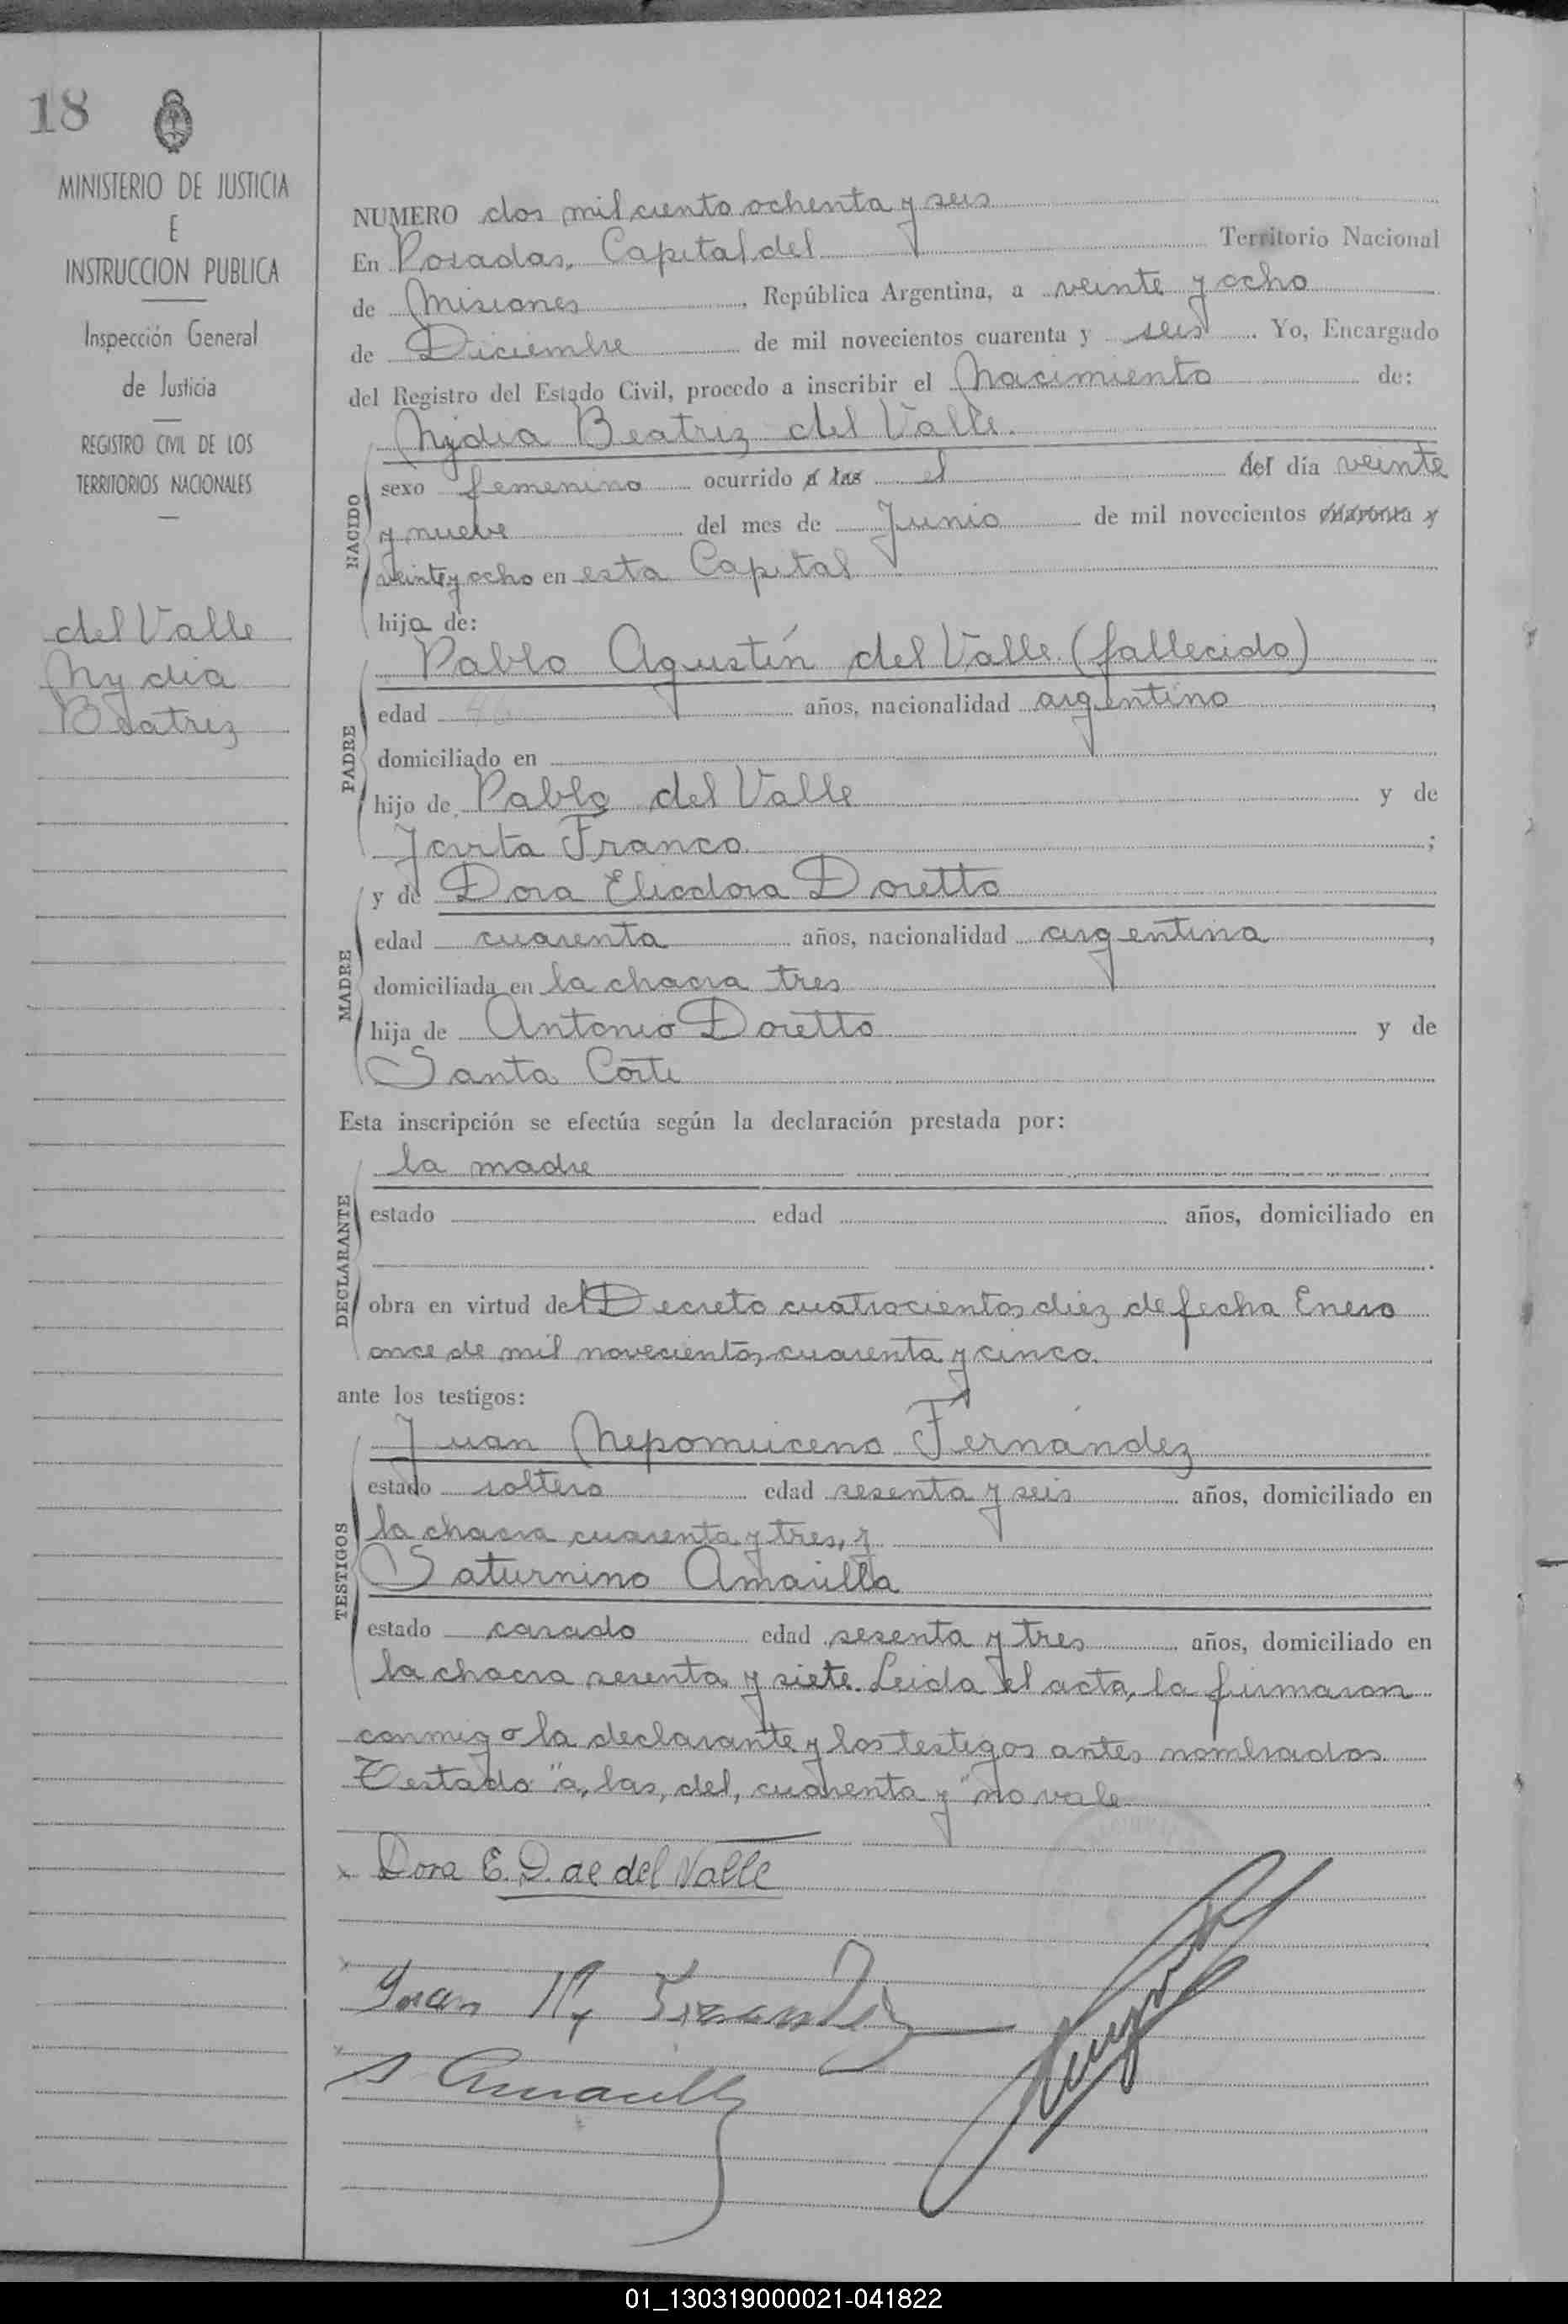 18
MINISTERIO DE JUSTICIA
E
INSTRUCCION PUBLICA
Inspección General
de Justicia
REGISTRO CIVIL DE LOS
TERRITORIOS NACIONALES
del Valle
Nydia
Beatriz
NUMERO dos mil ciento ochenta y seis
En Posadas, Capital del Territorio Nacional
de Misiones, República Argentina, a veinte y ocho
de Diciembre de mil novecientos cuarenta y seis. Yo, Encargado
del Registro del Estado Civil, procedo a inscribir el Nacimiento de:
Nydia Beatriz del Valle.
NACIDO
sexo femenino ocurrido a las el del día veinte
y nueve del mes de Junio de mil novecientos cuarenta y
veinte y ocho en esta Capital
hija de:
Pablo Agustín del Valle (fallecido)
PADRE
edad años, nacionalidad argentino,
domiciliado en
hijo de Pablo del Valle y de
Franco;
y de Dora Eliodora Doretto
MADRE
edad cuarenta años, nacionalidad argentina,
domiciliada en la chacra tres
hija de Antonio Doretto y de
Santa Corte
Esta inscripción se efectúa según la declaración prestada por:
la madre
DECLARANTE
estado edad años, domiciliado en
obra en virtud del Decreto cuatrocientos diez de fecha Enero
once de mil novecientos cuarenta y cinco.
ante los testigos:
Juan Nepomuceno Fernández
TESTIGOS
estado soltero edad sesenta y seis años, domiciliado en
la chacra cuarenta y tres, y
Saturnino Amarilla
estado casado edad sesenta y tres años, domiciliado en
la chacra sesenta y siete. Leida el acta, la firmaron
conmigo la declarante y los testigos antes nombrados
Testado "a, las, del, cuarenta y" no vale
Dora E. D. de del Valle
Juan N. Fernandez
S Amarilla
01_130319000021-041822